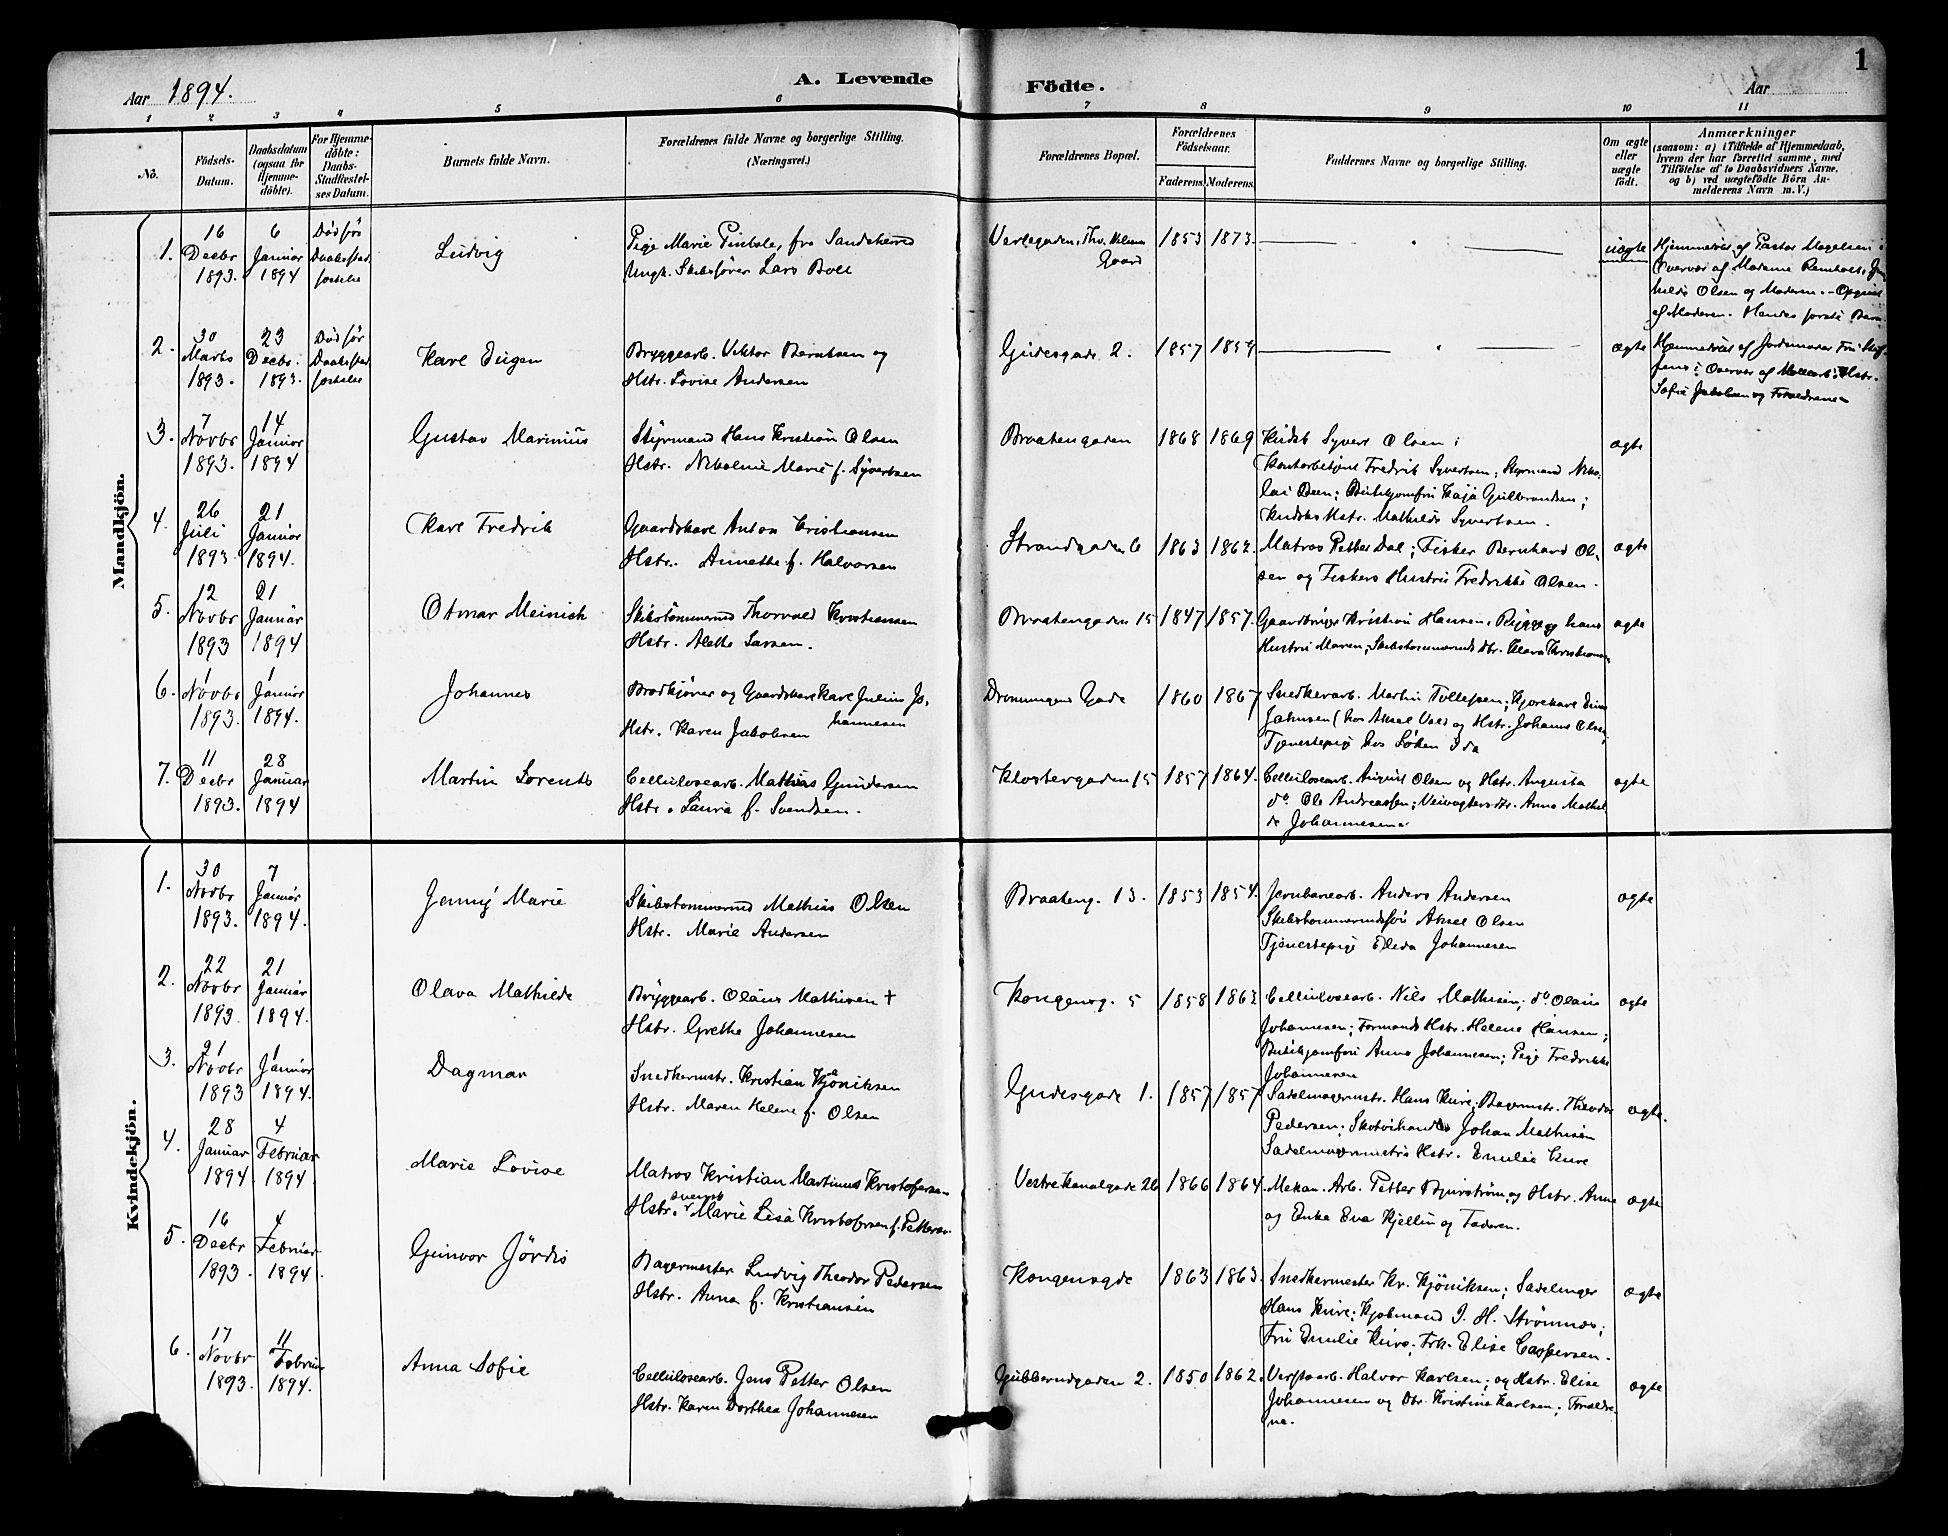 1
Aar 1894.
A. Levende Födte.
Aar
1 2 3 4 5 6 7 8 9 10 11
No.
Födsels-Datum.
Daabsdatum (ogsaa for Hjemme-döbte).
For Hjemme-döbte: Daabs-Stadfæstel-ses Datum.
Barnets fulde Navn.
Forældrenes fulde Navne og borgerlige Stilling. (Næringsvei.)
Forældrenes Bopæl.
Forældrenes Födselsaar.
Faderens. Moderens.
Faddernes Navne og borgerlige Stilling.
Om ægte eller uægte födt.
Anmærkninger
(saasom: a) i Tilfælde af Hjemmedaab,
hvem der har forrettet samme, med
Tilföielse af to Daabsvidners Navne,
og b) ved uægtefödte Börn An-
melderens Navn m. V.)
Mandkjön.
1. 16 Decbr 1893. 6 Januar 1894 Død før Daabsstadfæstelse
Ludvig
Pige Marie, fra Sandehered
Ungk. Skibsfører Lars Boll
Gaard
1853 1873.
uægte
Hjemmedøbt af Pastor Magelsen i
Overvær af Madame
Olsen og Moderen. - Opgivet
af Moderen. Hendes første Barn.
2. 30 Marts 1893. 23 Decbr. 1893. Død før Daabsstadfæstelse
Karl Eugen
Bryggearb. Viktor Berntsen og
Hstr. Lovise Andersen
Gudesgade 2.
1857 1859
ægte
Hjemmedøbt af Jordmoder Fru
i Overvær af Hstr.
Sofie Jakobsen og Forældrene
3. 7 Novbr 1893. 14 Januar 1894
Gustav Marinius
Styrmand Hans Kristian Olsen
Hstr. Nikoline Marie f. Syvertsen
Braatengaden
1868 1869
Syvert Olsen;
Fredrik Syvertsen; Styrmand Niko-
lai; Butikjomfru Kaja Gulbrandsen;
Hstr. Mathilde Syvertsen.
ægte
4. 26 Juli 1893. 21 Januar 1894.
Karl Fredrik
Gaardskarl Anton Kristiansen
Hstr. Annette f. Halvorsen
Strandgaden 6
1863 1862.
Matros Petter Dal; Fisker Bernhard Ol-
sen og Fiskers Hustru Fredrikke Olsen.
ægte
5. 12 Novbr 1893 21 Januar 1894
Otmar Meinich
Skibstømmermd Thorvald Kristiansen
Hstr. Alette Larsen.
Braatengaden 15
1847 1857.
Gaardbruger Kristian Hansen, Bigge og hans
Hustru Maren; Skibstømmermds Dtr. Klara Kristiansen
ægte
6. 1 Novbr 1893. 1 Januar 1894.
Johannes
Brødkjører og Gaardskarl Karl Julius Jo-
hannesen
Hstr. Karen Jakobsen
Dronningens Gade
1860 1867
Snedkerarb. Martin Tollefsen; Kjørekarl
Jahnsen (hos Aksel og Hstr. Johanne Olsen;
Tjenestepige hos Ida
7. 11 Decbr 1893. 28 Januar 1894
Martin Lorents
Cellulosearb. Mathias Gundersen
Hstr. Laura f. Svendsen.
Klostergaden 15
1857 1864.
Cellulosearb. August Olsen og Hstr. Augusta
do. Ole Andreassen; Veivogters Dtr. Anna Mathil-
de Johannesen.
ægte
Kvindekjön.
1. 30 Novbr 1893. 7 Januar 1894.
Jenny Marie
Skibstømmermd Mathias Olsen
Hstr. Marie Andersen
Braateng. 13.
1853 1854.
Jernbanearb. Anders Andersen
Aksel Olsen
Tjenestepige Elida Johannesen
ægte
2. 22 Novbr 1893. 21 Januar 1894.
Olava Mathilde
Bryggearb. Olaus Mathisen †
Hstr. Grethe Johannesen
Kongensg. 5
1858 1863
Cellulosearb. Nils Mathisen; do. Olaus
Johannesen; Formands Hstr. Helene Hansen;
Butikjomfru Anna Johannesen; Pige Fredrikke
Johannesen
ægte
3. 21 Novbr 1893 1 Januar 1894.
Dagmar
Snedkermstr. Kristian Kjöniksen
Hstr. Maren Helene f. Olsen
Gudesgade 1.
1857 1857
Sadelmagermstr. Hans Kure; Bagermstr. Theodor
Pedersen; Johan Mathisen
Sadelmagermstrs Hstr. Emilie Kure
ægte.
4. 28 Januar 1894 4 Februar 1894.
Marie Lovise
Matros Kristian Martinus Kristofersen
svensk
Hstr. Marie Lisa Kristofersen f. Petterson
Vestre Kanalgade 26
1866 1864.
Mekan. Arb. Petter Bjurström, og Hstr. Anna
og Enke Eva Kjellin og Faderen.
ægte
5. 16 Decbr 1893. 4 Februar 1894.
Gunvor Jördis
Bagermester Ludvig Theodor Pedersen
Hstr. Anna f. Kristiansen
Kongensgde
1863 1863.
Snedkermester Kr. Kjöniksen; Sadelmager
Hans Kure; Kjøbmand J. H. Strömnes;
Fru Emilie Kure, Frk. Elise Caspersen.
ægte
6. 17 Novbr 1893. 11 Februar 1894.
Anna Sofie
Cellulosearb. Jens Petter Olsen
Hstr. Karen Dorthea Johannesen
Gubberudgaden 2.
1850 1862.
Verftsarb. Halvor Karlsen; og Hstr. Elise
Johannesen og Dtr. Kristine Karlsen; Forældre-
ne.
ægte